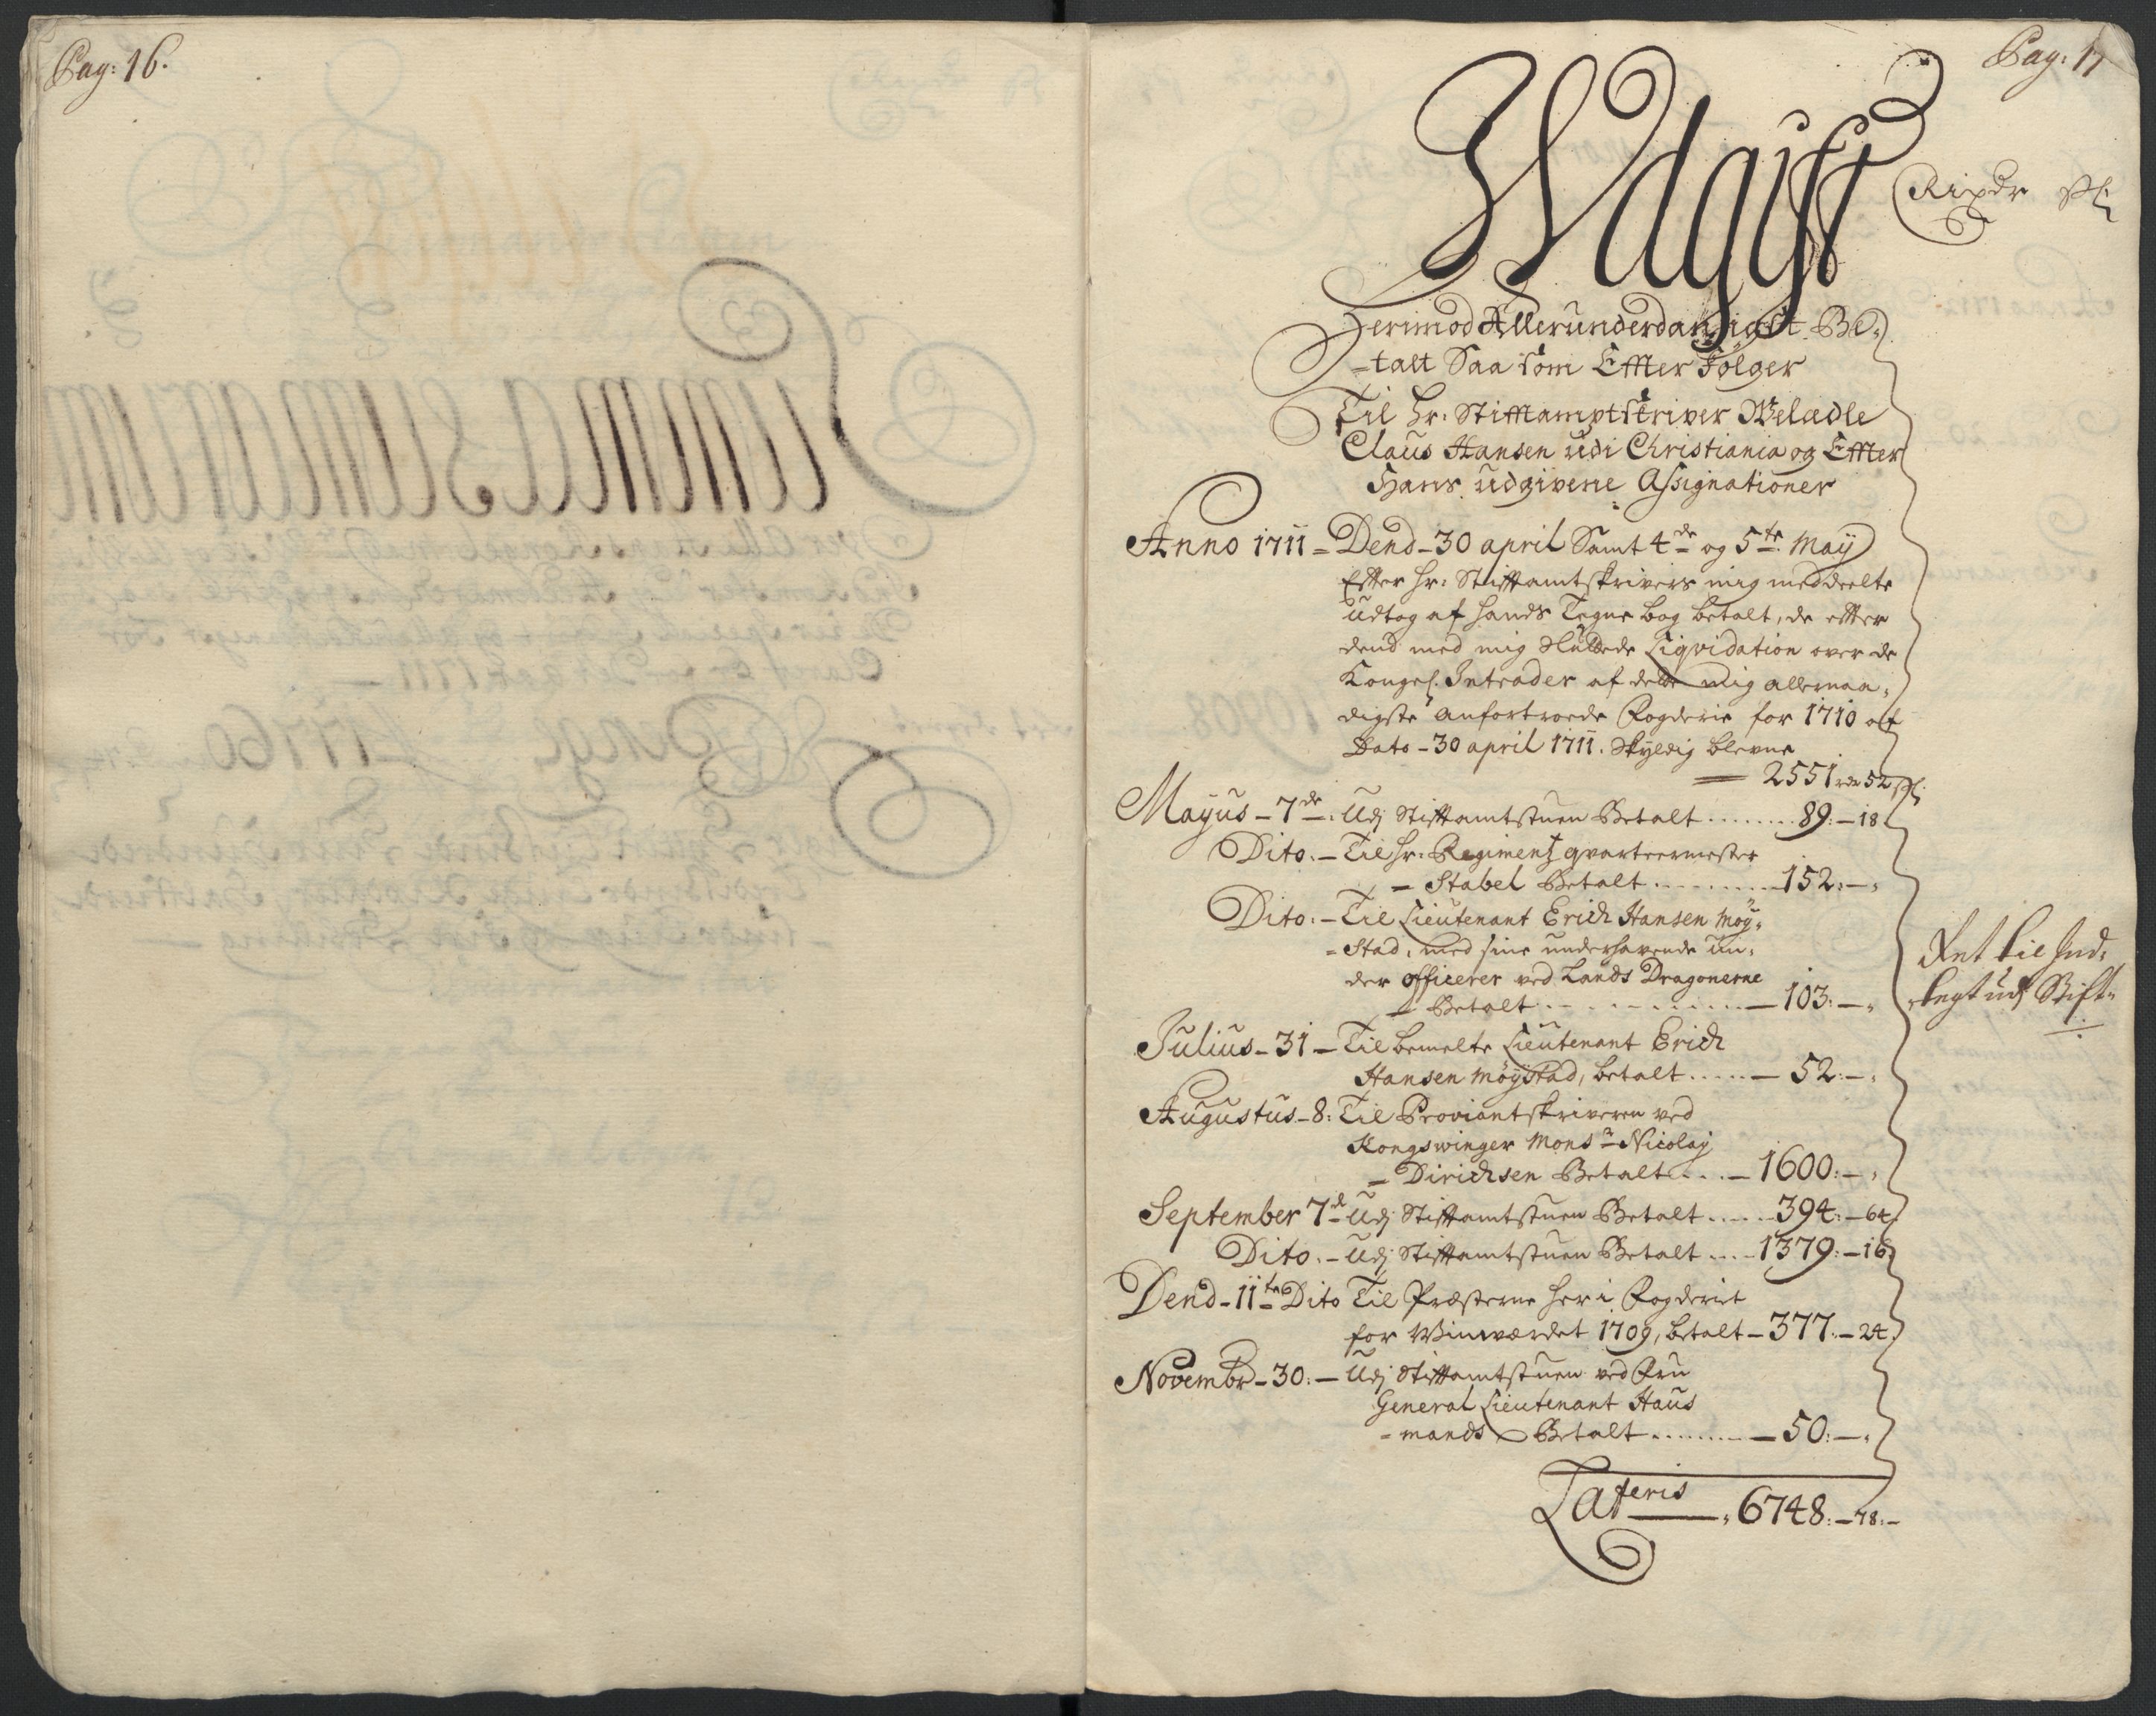 Pag: 16.
Pag: 17
Udgift
Rixdr
Derimod Allerunderdanigst Be-
-talt Saa som Effter Følger
Til Hr: Stifftamptskriver Welædle
Claus Hansen udi Christiania og Effter
Hans udgivene Assignationer
Anno 1711 - Dend - 30 april Samt 4de og 5te May
Efter Hr: Stiftamtskrivers mig meddeelte
Udtog af hands Tegne bog betalt, de efter
dend med mig Liqvidation over de
Kongel. Intrader af dette mig allernaa-
digste anfortroede Fogderie for 1710 af
Dato - 30 april 1711. Skyldig blevne
= 2551 rdr 52 sk
Mayus - 7de: Udj Stiftamtstuen Betalt ........ 89: - 18
Dito: - Til Hr: Regiment qvarteermester
= Stabel Betalt ......... 152: - "
Dito: - Til Lieutenant Erich Hansen Møy-
-stad, med sine underhavende un-
der officerer ved Lands Dragonerne
= Betalt ......... - 103: - "
Julius - 31 - Til bemelte Lieutenant Erich
Hansen Møystad, betalt ..... - 52: - "
Augustus - 8: Til Proviantskriveren ved
Kongswinger Monsr Nicolaj
= Dirichsen Betalt .... - 1600: - "
September 7d Udj Stiftamtstuen Betalt ..... 394: - 64
Dito: - Udj Stiftamtstuen Betalt .... 1379: - 16
Dend - 11te Dito Til Præsterne her i Fogderiet
for Winværdet 1709, betalt - 377: - 24
Novembr - 30: - Udj Stiftamtstuen ved Fru
General Lieutenant Haus
-mands Betalt ........ - 50: - "
Lateris 6748: - 78: -
Ret til Ind-
legt udj Stift: